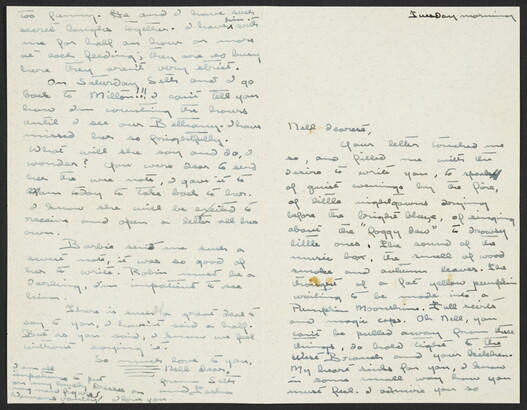 Tuesday morning
Nell dearest,
Your letter touched me
so, and filled me with the
desire to write you, to speak
of quiet evenings by the fire,
of little nightgowns drying
before the bright blaze, of singing
about the "foggy dew" to drowsy
little ones. The sound of the
music box, the smell of wood
smoke and autumn leaves. The
thought of a fat yellow pumpkin
waiting to be made into a
Pumpkin Moonshine. Full skirts
and magic caps. Oh Nell, you
can't be pulled away from these
things, so hold tight to the
West Branch and your kitchen.
My heart sinks for you, I know
in some small way how you
must feel. I admire you so
too funny. He and I have such
secret laughs together. I have him with
me for half an hour or more
at each feeding, they are so busy
here they aren't very strict.
On Saturday Seth and I go
back to Milton!!! I can't tell you
how I'm counting the hours
until I see our Bethany. I have
missed her so frightfully.
What will she say and do, I
wonder? You were dear to send
her the wee note, I gave it to
today to take back to her.
I know she will be excited to
receive and open a letter all her
own.
Barbie sent me such a
sweet note, it was so good of
her to write. Robin must be a
Darling, I'm impatient to see
him.
There is such a great deal to
say to you, I haven't said a half.
But as you said, I know we feel
without saying it.
So much love to you,
Nell dear.
from Seth
and Tasha
I am all
impatience to put
on my lovely
I love you.